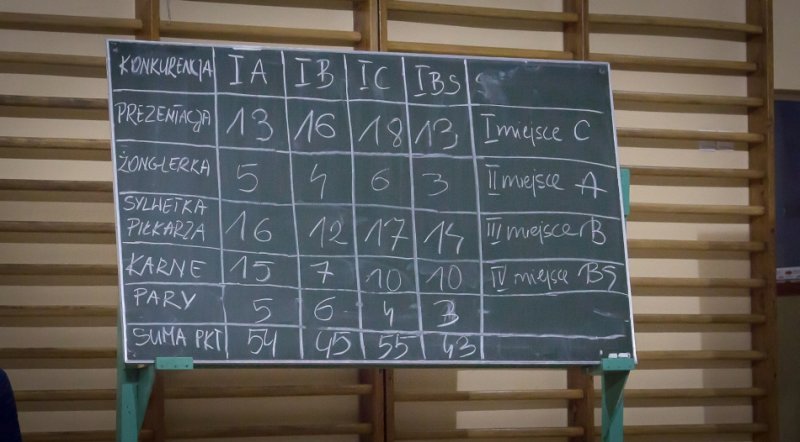 KONKURENCJA IA IB IC IBS
PREZENTACJA 13 16 18 13 I miejsce C
ŻONGLERKA 5 4 6 3 II miejsce A
SYLWETKA
PIŁKARZA 16 12 17 14 III miejsce B
KARNE 15 7 10 10 IV miejsce BS
PARY 5 6 4 3
SUMA PKT 54 45 55 43